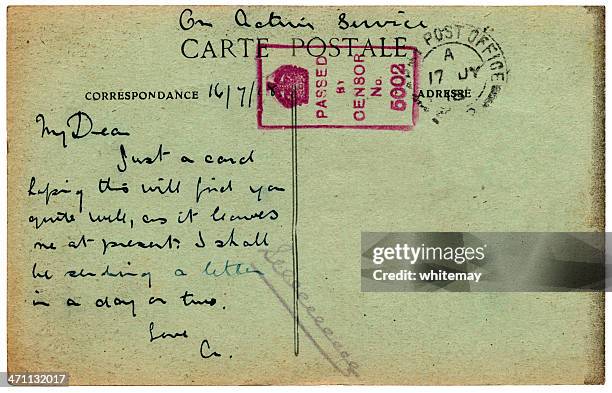 On Active Service
CARTE POSTALE
CORRESPONDANCE 16/7/18
ADRESSE
PASSED
BY
CENSOR
No.
5002
POST OFFICE
A
17 JY
18
My Dear
Just a card
hoping this will find you
quite well, as it leaves
me at present. I shall
be sending a letter
in a day or two.
Love
gettyimages
Credit: whitemay
471132017